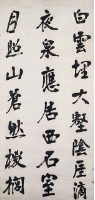 白雲埋大壑陰崖滴
夜泉應居西石室
月照山蒼然